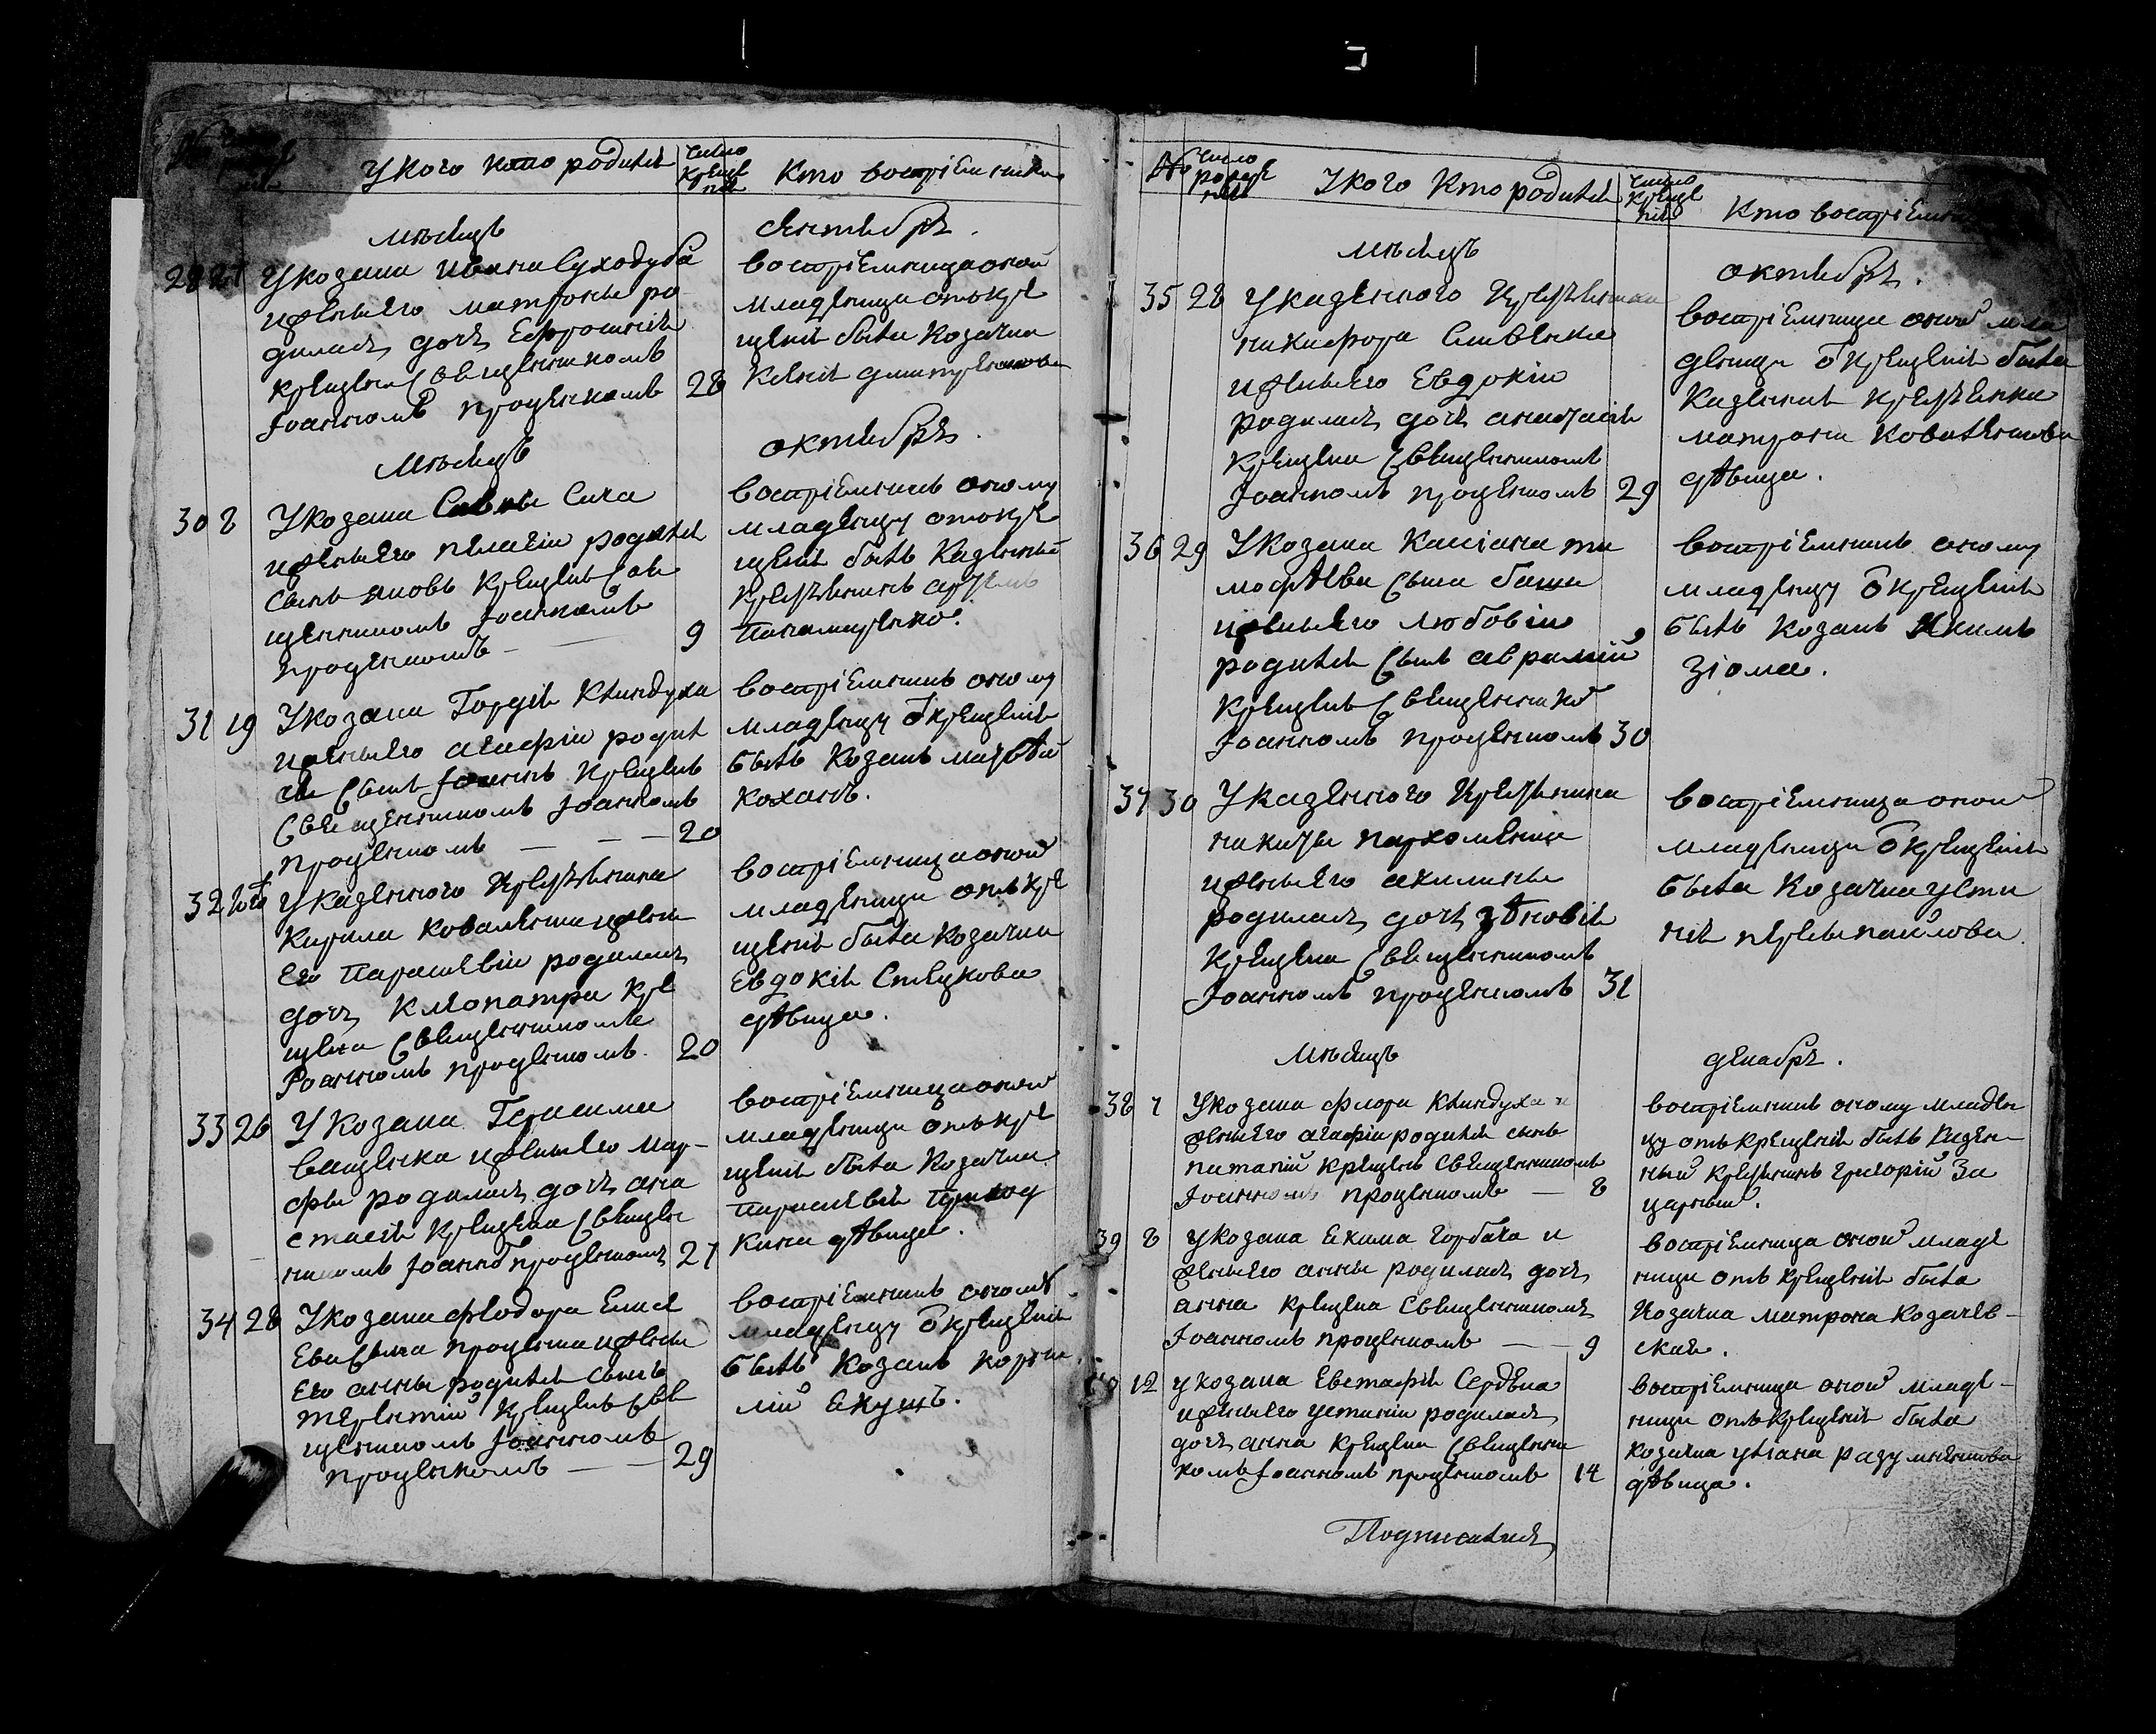 У кого кто родился
число крещенія
Кто воспріемники
мѣсяцъ
сентябрь.
29 27 У козака Ивана Суходуба
и жены его матроны ро
дилась дочь Ефросинія
крещена Священникомъ
Іоанномъ проценкомъ 28
воспріемница оной
младеници отъ кре
щенія была козачка
Ксенія дмитренкова
Мѣсяцъ
октябрь.
30 8 У козака Саввы Сича
и жены его пелагіи родился
сынъ яковъ крещенъ Свя
щенникомъ Іоанномъ
проценкомъ 9
воспріемникъ оному
младенцу отъ кре
щенія былъ казенный
крестьянинъ артемъ
панамаренко.
31 19 У козака Гордія Клиндуха
и жены его агафіи родил
ся Сынъ Іоаннъ крещенъ
Священникомъ Іоанномъ
проценкомъ 20
воспріемникъ оному
младенцу ѿ крещенія
былъ козакъ матвѣй
коханъ.
32 У казенного крестьянина
Кирила коваленка и жены
его параскевіи родилась
дочь клеопатра кре
щена Священникомъ
Іоанномъ проценкомъ. 20
воспріемница оной
младеници отъ кре
щенія была козачка
Евдокія Стецкова
дѣвица.
33 26 У козака Герасима
Ващенка и жены его мар-
фы родилась дочь ана
стасія крещена Священ
никомъ Іоанно проценкомъ 27
воспріемница оной
младеници отъ кре
щенія была козачка
параскевія
кина дѣвица.
34 28 У козака федора Елисе
ева Сына проценка и жены
его анны родился сынъ
терентій крещенъ Свя
щенникомъ Іоанномъ
проценкомъ 29
воспріемникъ оному
младенцу ѿ крещенія
былъ козакъ корни
лій Якуцъ.
№ число рожденія
У кого Кто родился
число крещенія
Кто воспріемники
мѣсяцъ
октябрь.
35 28 У казенного крестьянина
никифора Сливенка
и жены его Евдокіи
родилась дочь анастасія
крещена Священникомъ
Іоанномъ проценкомъ 29
воспріемница оной мла
деници ѿ крещенія была
казенная крестьянка
матрона коваленкова
дѣвица.
36 29 У козака Кассіана ти
мофѣева Сына баши
и жены его любовіи
родился Сынъ аврамій
крещенъ Священнико
Іоанномъ проценкомъ 30
воспріемникъ оному
младенцу ѿ крещенія
былъ козакъ Якимъ
зіома.
37 30 У казенного крестьянина
никиты пархоменка
и жены его акилины
родилась дочь зѣновія
крещена Священникомъ
Іоанномъ проценкомъ 31
воспріемница оной
младеници ѿ крещенія
была козачка усти
нія
мѣсяцъ
декабрь.
38 7 У козака флора клиндуха и
жены его агафіи родился сынъ
паталій крещенъ Священникомъ
Іоанномъ проценкомъ 8
воспріемникъ оному младен
цу отъ крещенія былъ казен-
ный крестьянинъ григорій За
царный.
39 8 У козака Якима горбача и
жены его анны родилась дочь
анна крещена Священникомъ
Іоанномъ проценкомъ 9
воспріемница оной младе
ници отъ крещенія была
козачка матрона козачев-
ская.
40 12 у козака Евстафія Сердека
и жены его устиніи родилась
дочь анна крещена Священни
комъ Іоанномъ проценкомъ 14
воспріемница оной младе-
ници отъ крещенія была
козачка уліана разумненкова
дѣвица.
Подписались